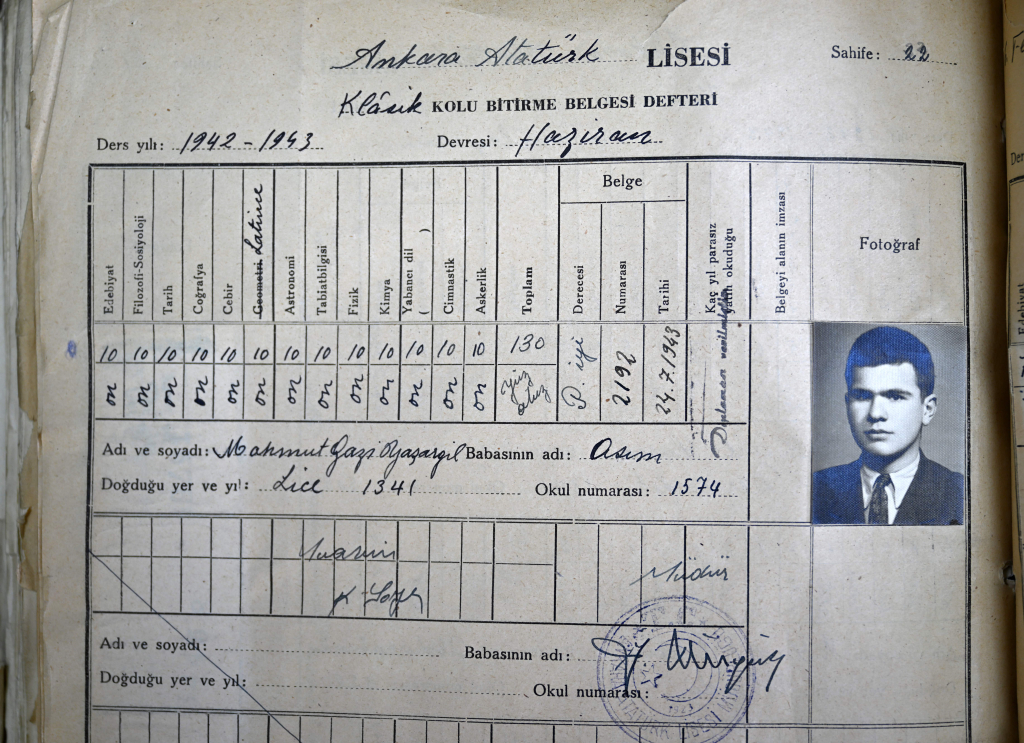 Ankara Atatürk LİSESİ
Sahife: 22
Klâsik KOLU BİTİRME BELGESİ DEFTERİ
Ders yılı: 1942-1943
Devresi: Haziran
Edebiyat
Filozofi-Sosiyoloji
Tarih
Coğrafya
Cebir
Geometri Latince
Astronomi
Tabiatbilgisi
Fizik
Kimya
Yabancı dil ( )
Cimnastik
Askerlik
Toplam
Belge
Derecesi
Numarası
Tarihi
Kaç yıl parasız yatılı okuduğu
Belgeyi alanın imzası
Fotoğraf
10 10 10 10 10 10 10 10 10 10 10 10 10 130
on on on on on on on on on on on on on yüz otuz
P. iyi
2192
24.7.1943
Adı ve soyadı: Mahmut Gazi Yaşargil Babasının adı: Asım
Doğduğu yer ve yıl: Lice 1341 Okul numarası: 1574
Muavin
Müdür
Adı ve soyadı: Babasının adı:
Doğduğu yer ve yıl: Okul numarası: